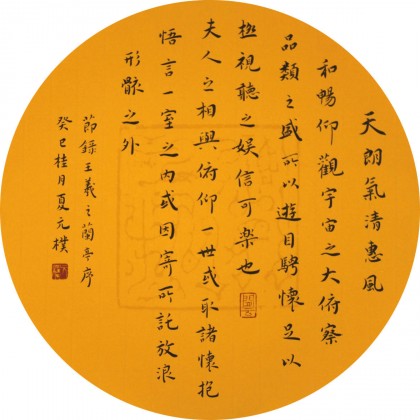 天朗氣清惠風
和暢仰觀宇宙之大俯察
品類之盛所以遊目騁懷足以
極視聽之娱信可樂也
夫人之相與俯仰一世或取諸懷抱
悟言一室之内或因寄所託放浪
形骸之外
節録王羲之蘭亭序
癸巳桂月夏元樸